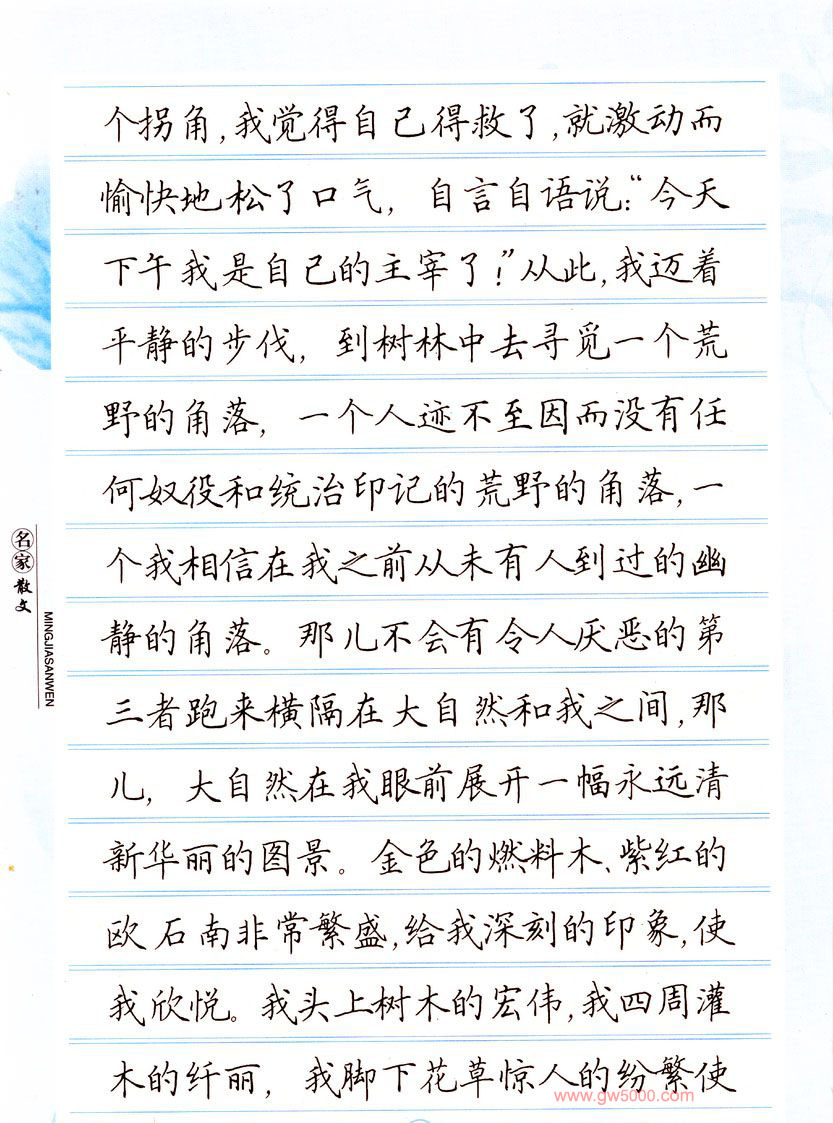 个拐角,我觉得自己得救了,就激动而
愉快地松了口气, 自言自语说:“今天
下午我是自己的主宰了!”从此,我迈着
平静的步伐, 到树林中去寻觅一个荒
野的角落, 一个人迹不至因而没有任
何奴役和统治印记的荒野的角落,一
个我相信在我之前从未有人到过的幽
静的角落。那儿不会有令人厌恶的第
三者跑来横隔在大自然和我之间,那
儿, 大自然在我眼前展开一幅永远清
新华丽的图景。金色的燃料木、紫红的
欧石南非常繁盛,给我深刻的印象,使
我欣悦。我头上树木的宏伟,我四周灌
木的纤丽, 我脚下花草惊人的纷繁使
名家散文
MINGJIASANWEN
www.gw5000.com